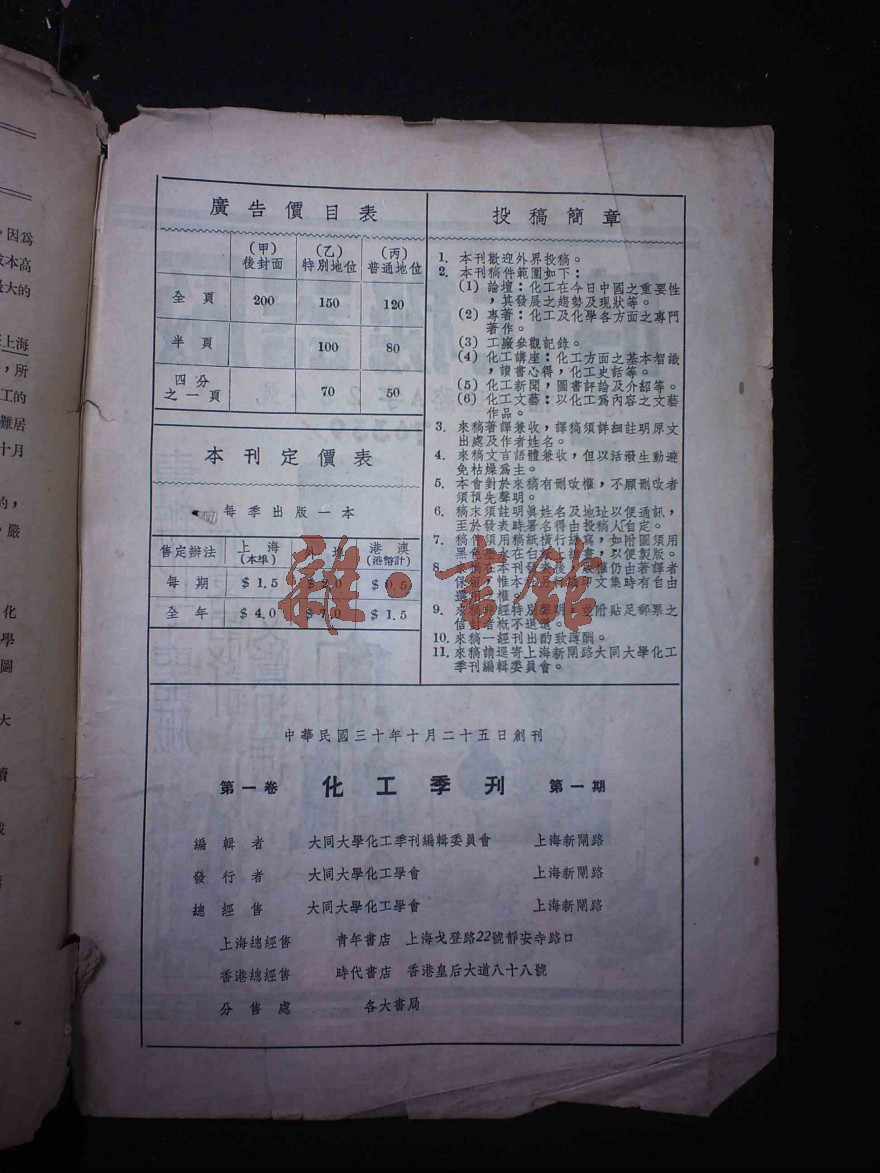 廣告價目表
(甲) 後封面 (乙) 特別地位 (丙) 普通地位
全頁 200 150 120
半頁 100 80
四分之一頁 70 50
本刊定價表
每季出版一本
售定辦法 上海(本埠) 港澳(港幣計)
每期 $1.5 $2.0 $0.5
全年 $4.0 $7.0 $1.5
投稿簡章
1. 本刊歡迎外界投稿。
2. 本刊稿件範圍如下：
(1) 論壇：化工在今日中國之重要性
，其發展之趨勢及現狀等。
(2) 專著：化工及化學各方面之專門
著作。
(3) 工廠參觀記錄。
(4) 化工講座：化工方面之基本智識
，讀書心得，化工史話等。
(5) 化工新聞，圖書評論及介紹等。
(6) 化工文藝：以化工為內容之文藝
作品。
3. 來稿著譯兼收，譯稿須詳細註明原文
出處及作者姓名。
4. 來稿文言語體兼收，但以活潑生動避
免枯燥為主。
5. 本會對於來稿有刪改權，不願刪改者
須預先聲明。
6. 稿末須註明真姓名及地址以便通訊，
至於發表時署名得由投稿人自定。
7. 稿件須用稿紙橫行繕寫，如附圖須用
黑色墨水在白紙上繪畫，以便製版。
8. 稿在本刊發表後，版權仍由著譯者
保留，惟本刊另行編印文集時有自由
選用權。
9. 來稿非經特別聲明，並附貼足郵票之
信封者概不退還。
10. 來稿一經刊出酌致薄酬。
11. 來稿請逕寄上海新閘路大同大學化工
季刊編輯委員會。
中華民國三十年十月二十五日創刊
第一卷 化工季刊 第一期
編輯者 大同大學化工季刊編輯委員會 上海新閘路
發行者 大同大學化工學會 上海新閘路
總經售 大同大學化工學會 上海新閘路
上海總經售 青年書店 上海戈登路22號靜安寺路口
香港總經售 時代書店 香港皇后大道八十八號
分售處 各大書局